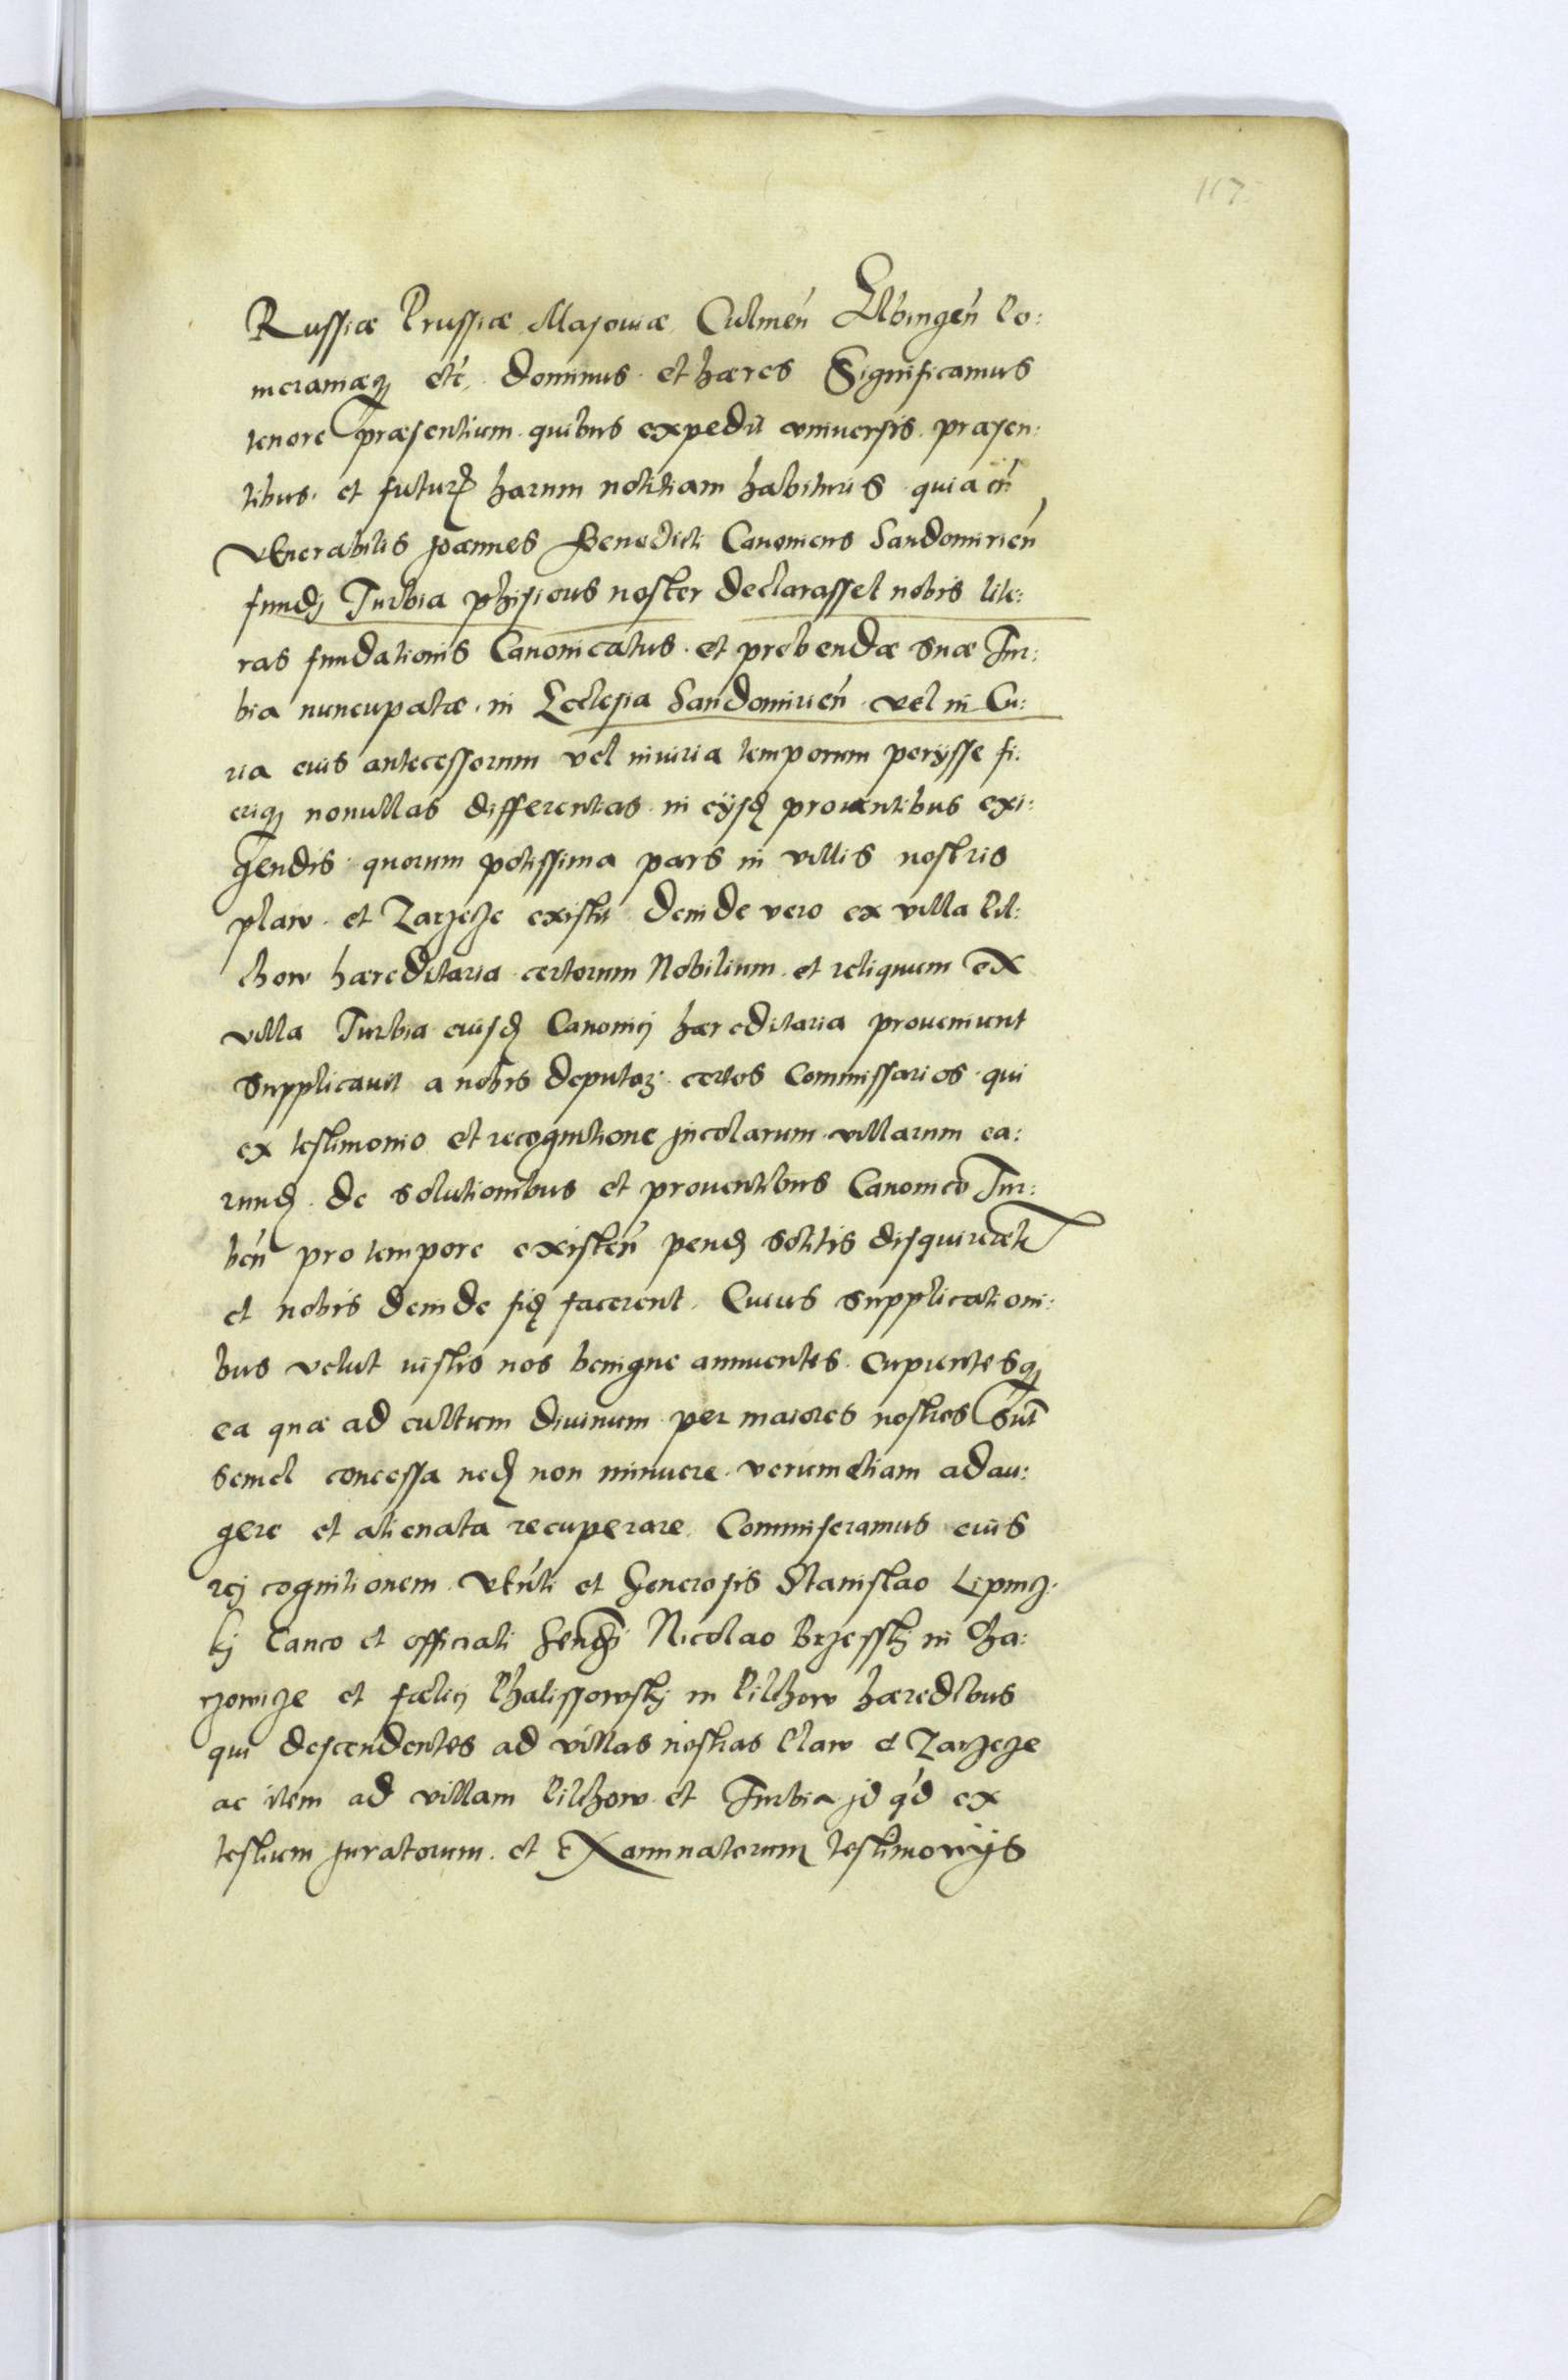 117
Russiæ Prussiæ Masoviæ Culmeń Elbingeń Po:
meraniæq; etc̃. dominus et hæres Significamus
tenore præsentium quibus expedit vniversis præsen:
tibus et futurꝫ harum notitiam habituris quia cũ
Venerabilis Joannes Benedicti Canonicus Sandomirień
fundj Turbia phisicus noster declarasset nobis lite:
ras fundationis Canonicatus et prebendæ suæ Tur:
bia nuncupatæ in Ecclesia Sandomirień vel in Cu:
ria eius antecessorum vel iniuria temporum perijsse fi:
eriq; nonullas differentias in eijsdꝫ proventibus exi:
gendis quorum potissima pars in villis nostris
plaw et Zarzecze existit deinde vero ex villa Pil:
chow hæreditaria certorum Nobilium et reliquum ex
villa Turbia eiusdꝫ Canonicj hæreditaria proveniunt
supplicavit a nobis deputarj certos Commissarios qui
ex testimonio et recognitione jncolarum villarum ea:
rundꝫ de solutionibus et proventibus Canonico Tur:
bień pro tempore existeń pendꝫ solitis disquirerent
et nobis deinde fidꝫ facerent. Cuius supplicationi:
bus velut iustis nos benigne annuentes. Cupientesq;
ea quæ ad cultum divinum per maiores nostros sut̃
semel concessa nedꝫ non minuere verumetiam adau:
gere et alienata recuperare. Commiseramus eius
rej cognitionem Veńli et Generosis Stanislao Lipnicz:
kj Canco et officiali Nicolao Brzesskj in Cha:
rzewicze et fælicj Chalissowskj in Pilchow hæredibus
qui descendentes ad villas nostras Plaw et Zarzecze
ac item ad villam Pilchow et Turbia jd q́d ex
testium juratorum et Examinatorum testimonijs